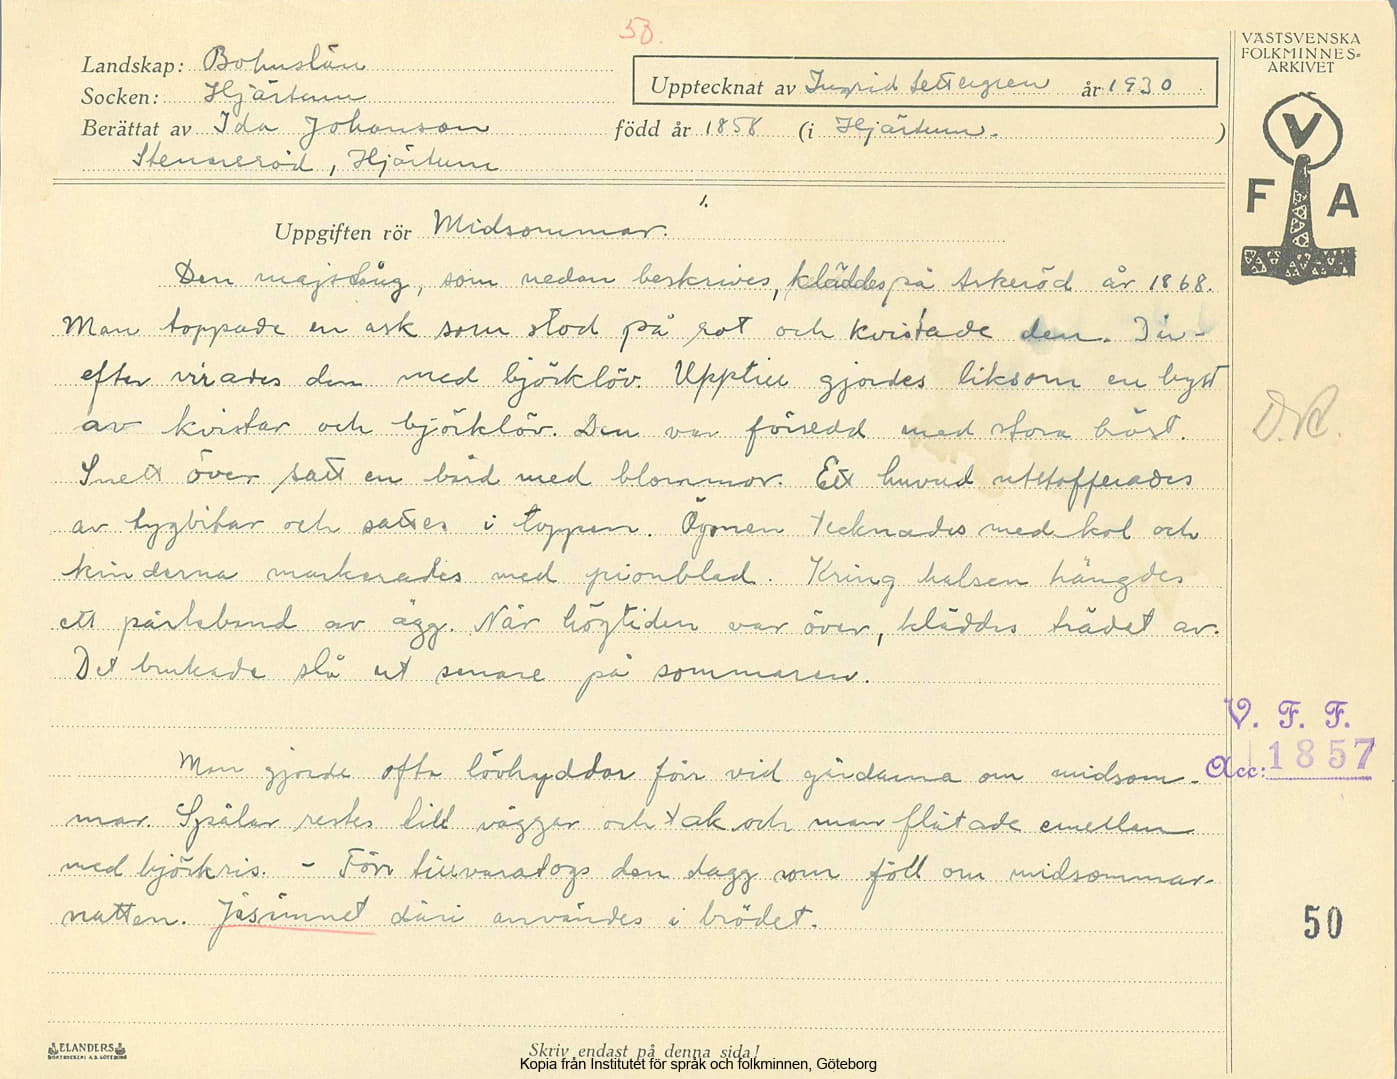 58.
VÄSTSVENSKA
FOLKMINNES-
ARKIVET
Landskap: Bohuslän
Socken: Hjärtum
Upptecknat av Ingrid Settergren år 1930
Berättat av Ida Johanson född år 1858 (i Hjärtum. )
Stenneröd, Hjärtum
V
F A
1.
Uppgiften rör Midsommar.
Den majstång, som nedan beskrives, kläddes på Askeröd år 1868.
Man toppade en ask som stod på rot och kvistade den. Där-
efter virades den med björklöv. Upptill gjordes liksom en byst
av kvistar och björklöv. Den var försedd med stora bröst.
Snett över satt en bård med blommor. Ett huvud utstofferades
av tygbitar och sattes i toppen. Ögonen tecknades med kol och
kinderna markerades med pionblad. Kring halsen hängdes
ett pärlaband av ägg. När högtiden var över, kläddes trädet av.
Det brukade slå ut senare på sommaren.
Man gjorde ofta lövhyddor förr vid gårdarna om midsom-
mar. Spålar restes till väggar och tak och man flätade emellan
med björkris. - Förr tillvaratogs den dagg som föll om midsommar-
natten. Jäsämnet däri användes i brödet.
V. F. F.
Acc: 1857
50
ELANDERS
BOKTRYCKERI A.B. GÖTEBORG
Skriv endast på denna sida!
Kopia från Institutet för språk och folkminnen, Göteborg